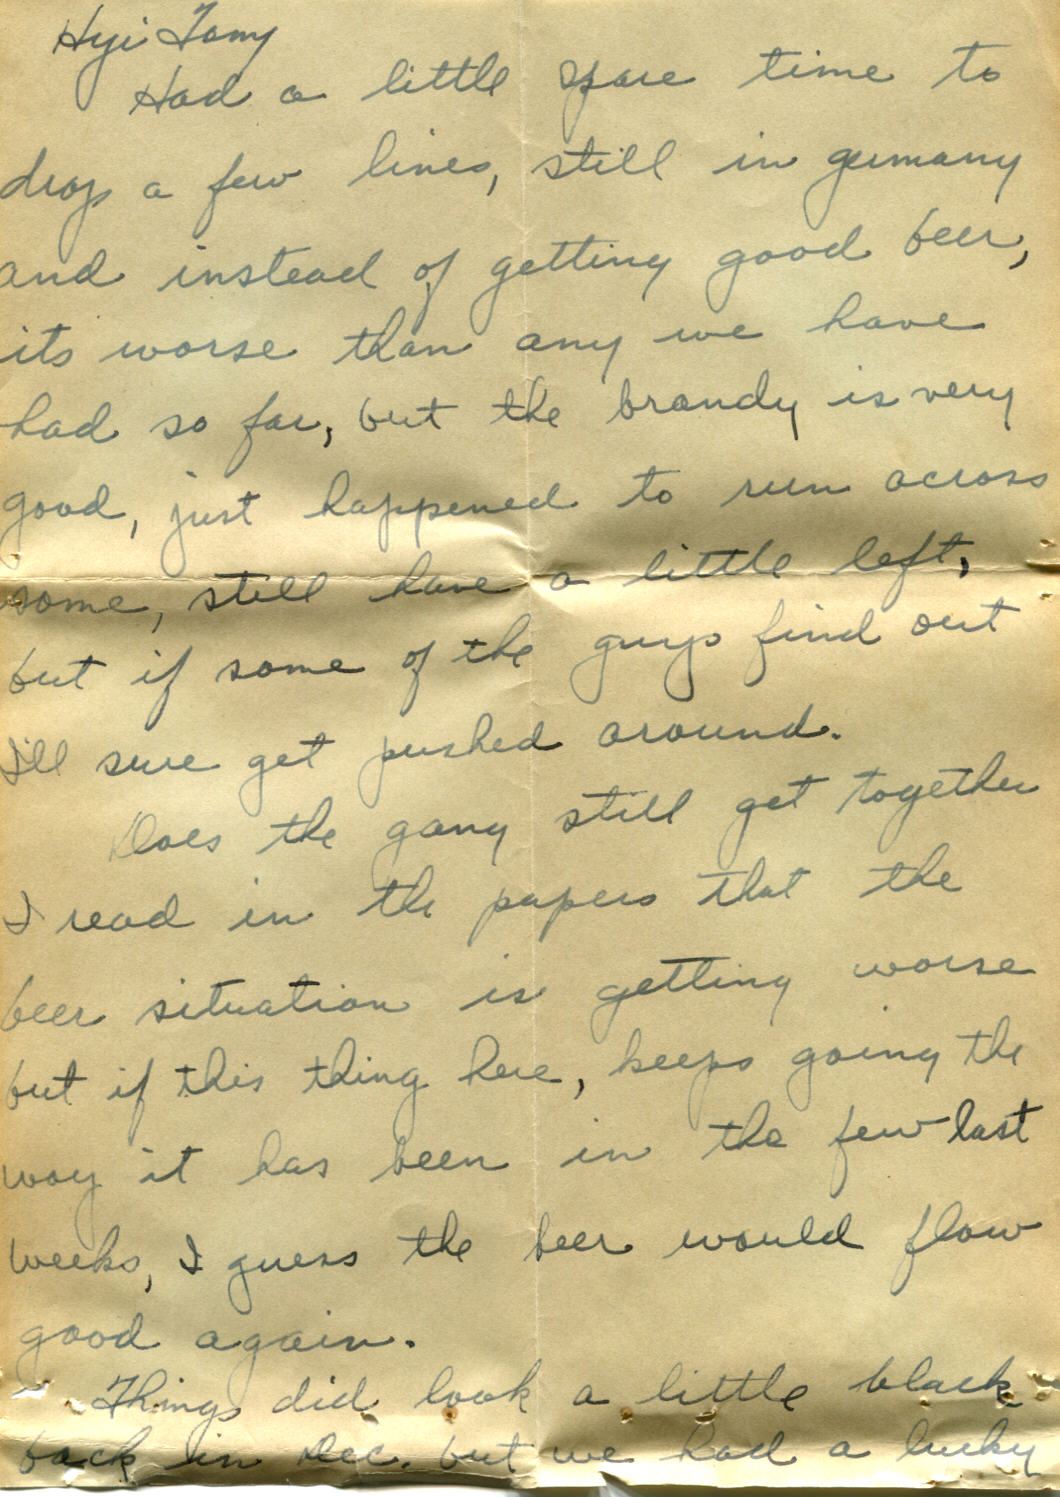 Hyi Tony
Had a little spare time to
drop a few lines, still in germany
and instead of getting good beer,
its worse than any we have
had so far, but the brandy is very
good, just happened to run across
some, still have a little left,
but if some of the guys find out
I'll sure get pushed around.
Does the gang still get together
I read in the papers that the
beer situation is getting worse
but if this thing here, keeps going the
way it has been in the few last
weeks, I guess the beer would flow
good again.
Things did look a little black
back in Dec. but we had a lucky